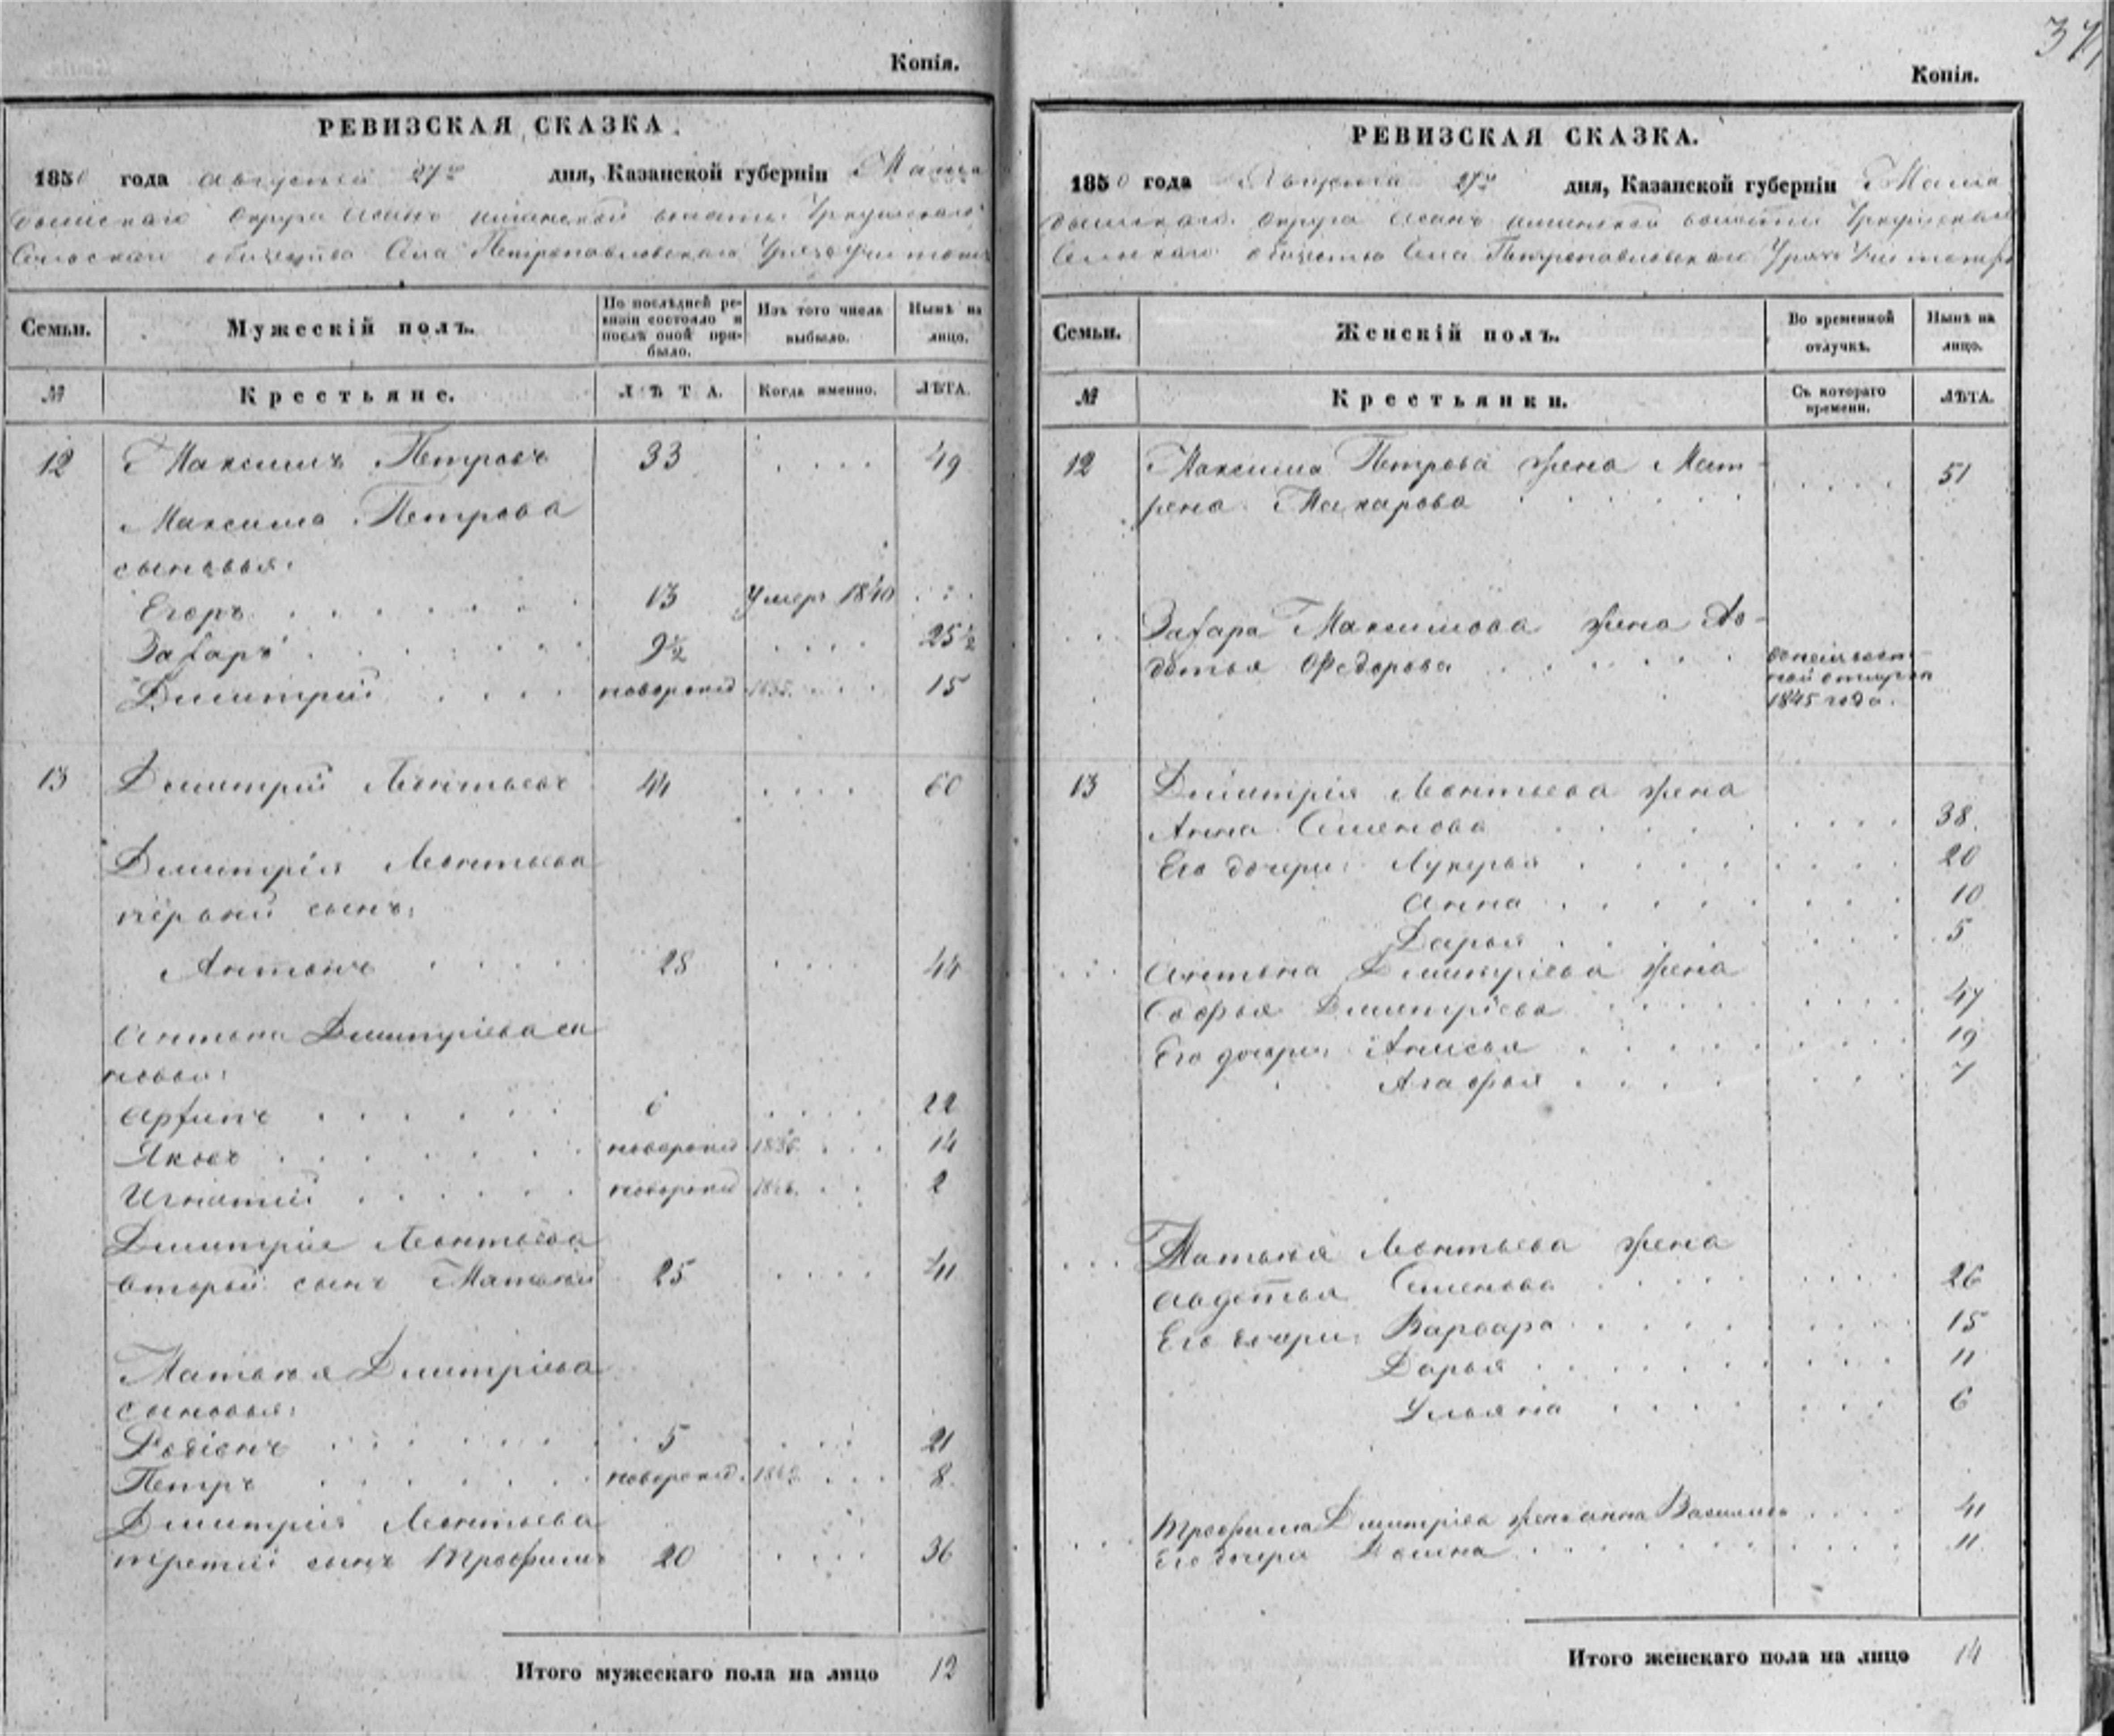 Копія.
РЕВИЗСКАЯ СКАЗКА.
1850 года Августа 27го дня, Казанской губерніи Мама
дышскаго округа волости
Сельскаго общества Села Петропавловскаго
Семьи. Мужескій полъ. По послѣдней ре- Изъ того числа Нынѣ на
визіи состояло и выбыло. лицо.
послѣ оной при-
было.
№ Крестьяне. ЛѢТА. Когда именно. ЛѢТА.
12 Максимъ Петровъ 33 . . . . 49
Максима Петрова
сыновья:
Егоръ . . . . . . 13 Умеръ 1840 . . .
Захаръ . . . . . . 9½ . . . . 25½
Дмитрій . . . новорожд 1835 . . . 15
13 Дмитрій Леонтьевъ 44 . . . . 60
Дмитрія Леонтьева
первый сынъ:
Антонъ . . . . 28 . . . . 44
Антона Дмитріева сы
новья:
Архипъ . . . . . . 6 . . . . 22
Яковъ . . . . . . новорожд 1836 . . . 14
Игнатій . . . . . новорожд . . 2
Дмитрія Леонтьева
вторый сынъ Матвей 25 . . . . 41
Матвея Дмитріева
сыновья:
Родіонъ . . . . . . 5 . . . 21
Петръ . . . . . . новорожд. . . . 8
Дмитрія Леонтьева
третій сынъ Трофимъ 20 . . . . 36
Итого мужескаго пола на лицо 12
37
Копія.
РЕВИЗСКАЯ СКАЗКА.
1850 года Августа 27го дня, Казанской губерніи Мама
дышскаго округа волости
Сельскаго общества Села Петропавловскаго
Семьи. Женскій полъ. Во временной Нынѣ на
отлучкѣ. лицо.
№ Крестьянки. Съ котораго ЛѢТА.
времени.
12 Максима Петрова жена Мат-
рена Макарова . . . . . 51
Захара Максимова жена Ав-
дотья Федорова . . . . .
1845 года.
13 Дмитрія Леонтьева жена
Анна Семенова . . . . . 38.
Его дочери: Лукерья . . . . . 20
Анна . . . . . 10
Дарья . . . . . 5
Антона Дмитріева жена
Софья Дмитріева . . . . . 47
Его дочери: Анисья . . . . . 19
Агафья . . . . . 7
Матвея Леонтьева жена
Авдотья Семенова . . . . . 26
Его дочери: Варвара . . . . . 15
Дарья . . . . . 11
Ульяна . . . . . 6
Трофима Дмитріева жена Анна . . . . 41
Его дочери . . . . . 11
Итого женскаго пола на лицо 14